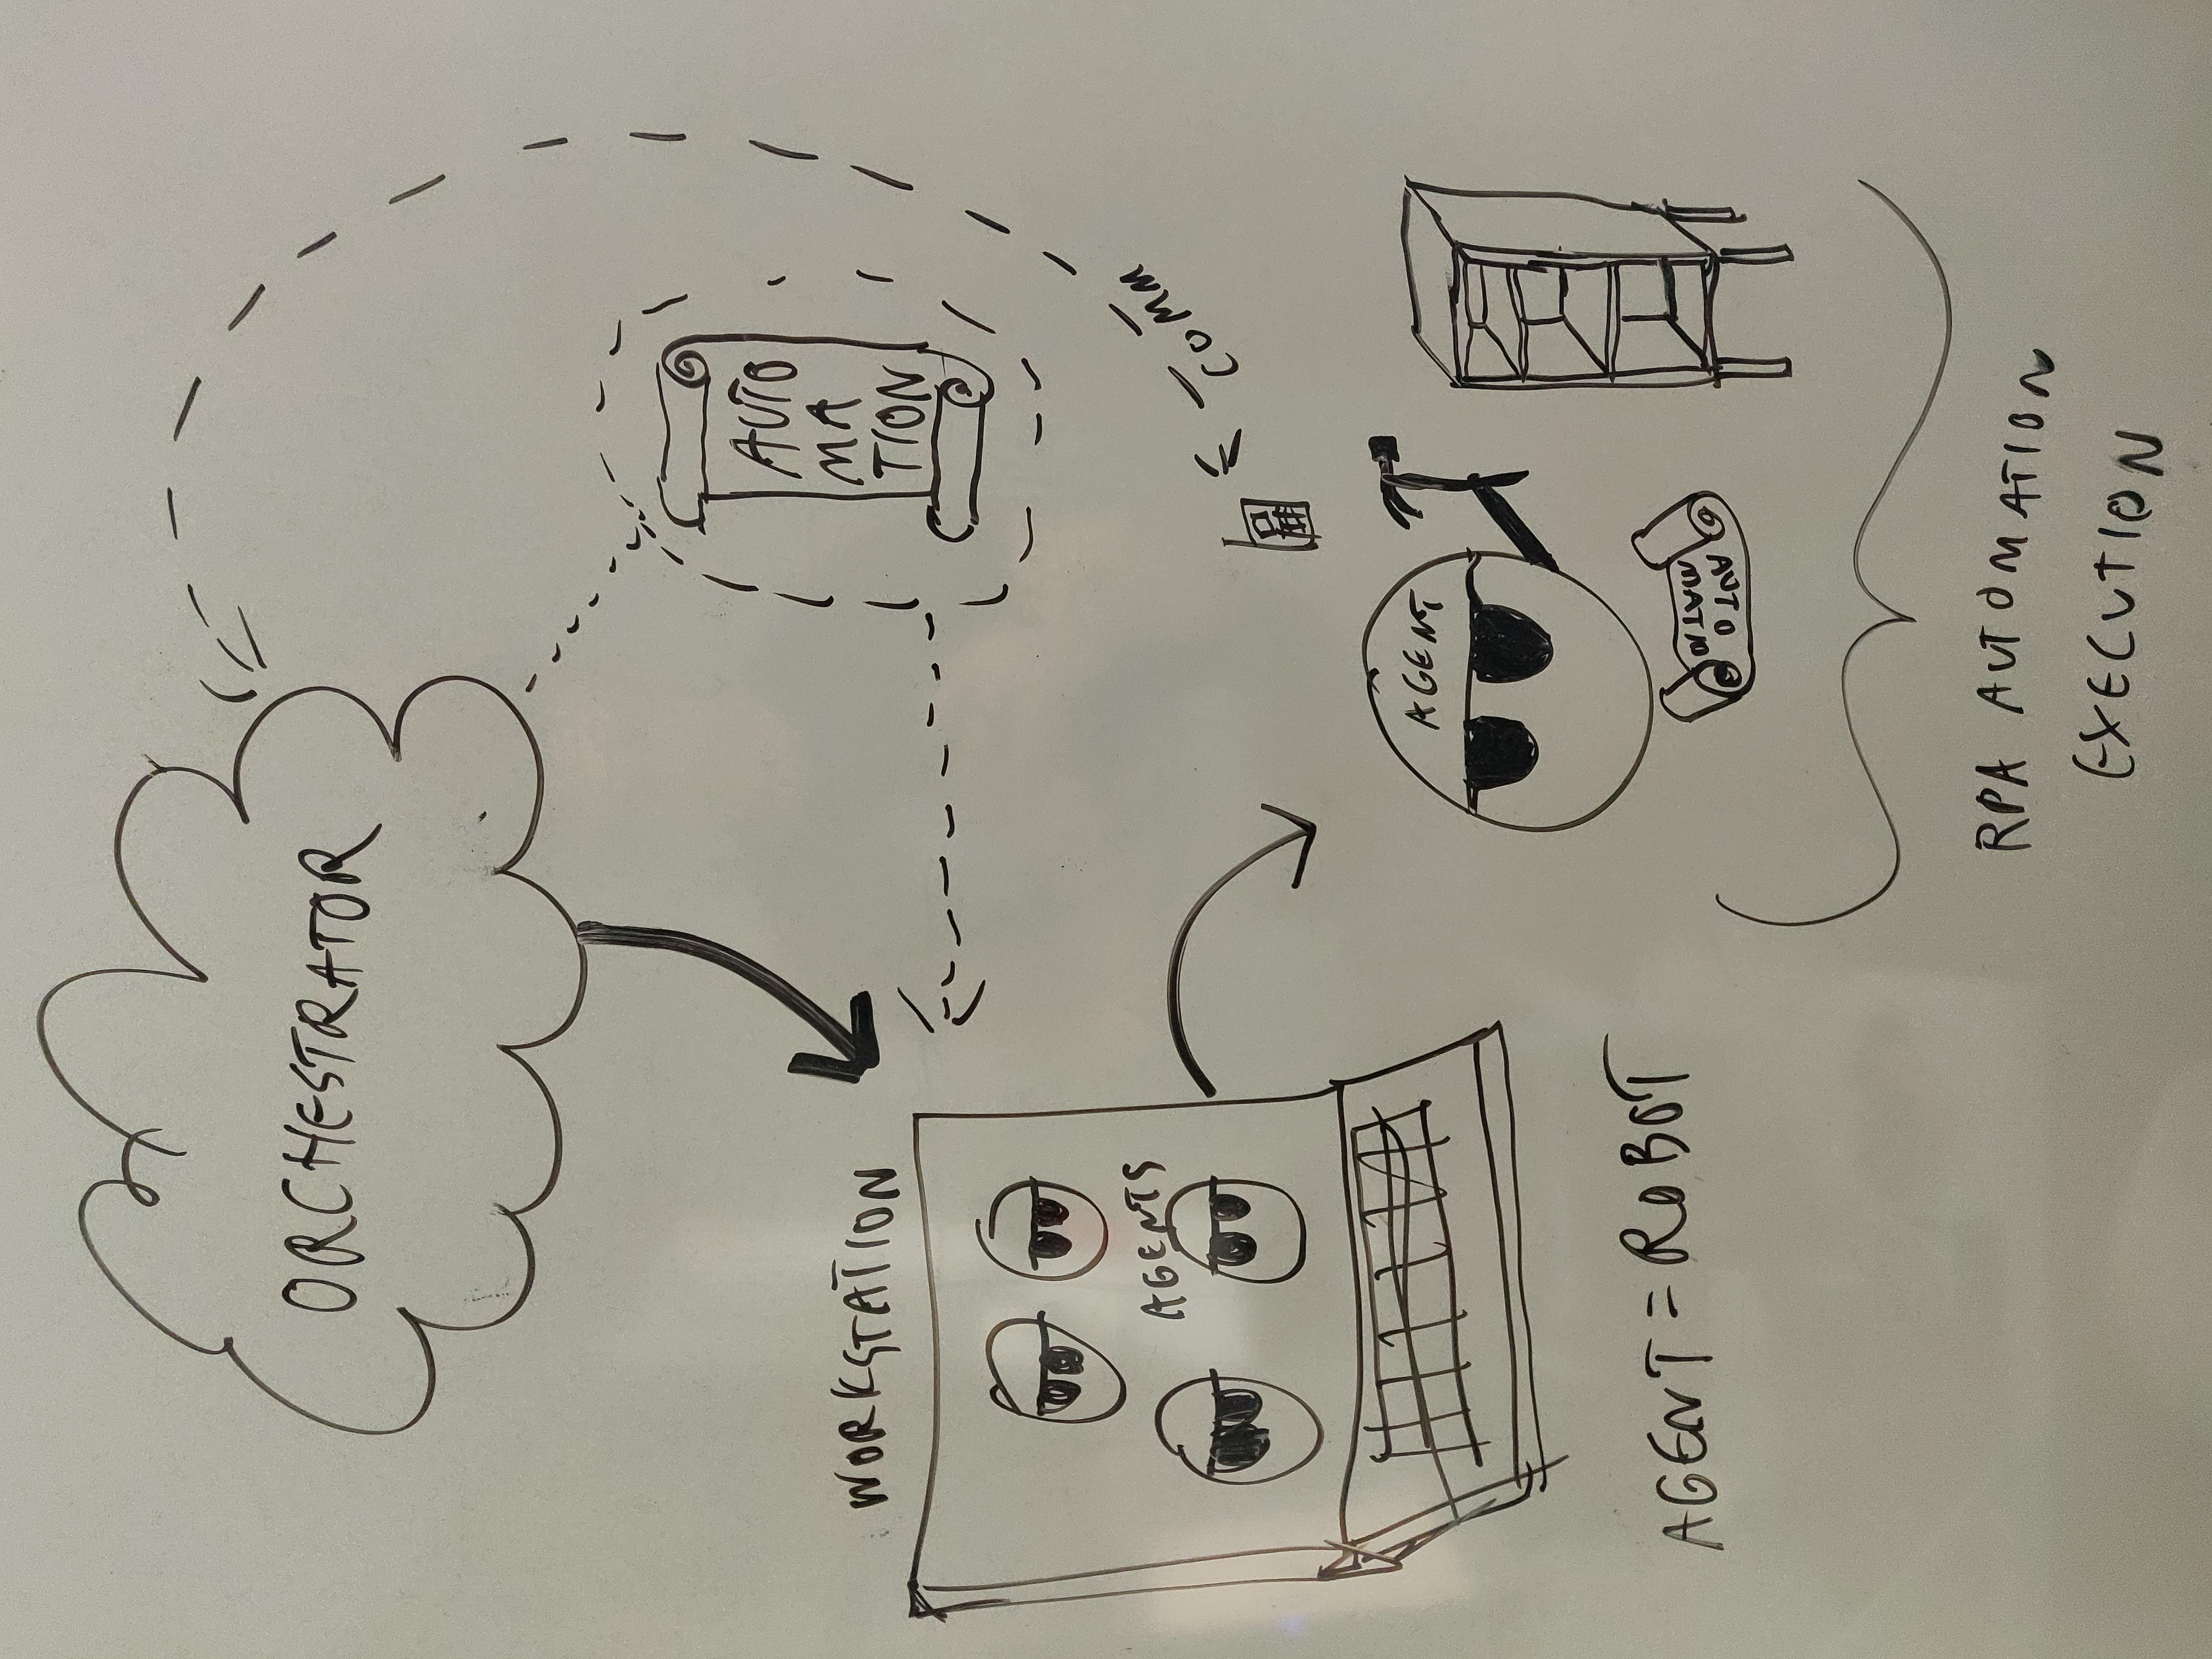 ORCHESTRATOR
AUTO
MA
TION
WORKSTATION
AGENTS
COMM
AGENT
AGENT = ROBOT
AUTO
MATIO
RPA AUTOMATION
EXECUTION